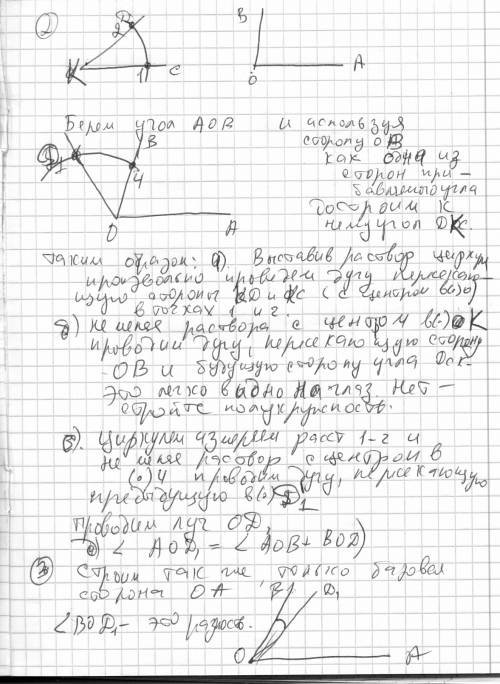 2
D
B
2
K
1
C
O
A
Берем угол АОВ и используя
сторону ОВ
как одна из
сторон при-
бавляемого угла
достроим к
нему угол DKC.
D1
B
4
O
A
Таким образом: а). Выставив раствор циркуля
произвольно проведем дугу пересекаю-
щую стороны KD и KC (с центром в (•)
в точках 1 и 2.
б) не меняя раствора с центром в (•) O
проводим дугу, пересекающую сторону
OB и будущую сторону угла DCK-
это легко видно на глаз. Нет -
стройте полукружность.
в). Циркулем измеряем расст 1-2 и
не меняя раствор с центром в
(•) 4 проводим дугу, пересекающую
предыдущую в (•) D1
Проводим луч OD1
∠ AOD1 = ∠ AOB + BOD)
3 Строим так же, только базовая
сторона OA
B
D1
∠BOD1 - это разность.
O
A